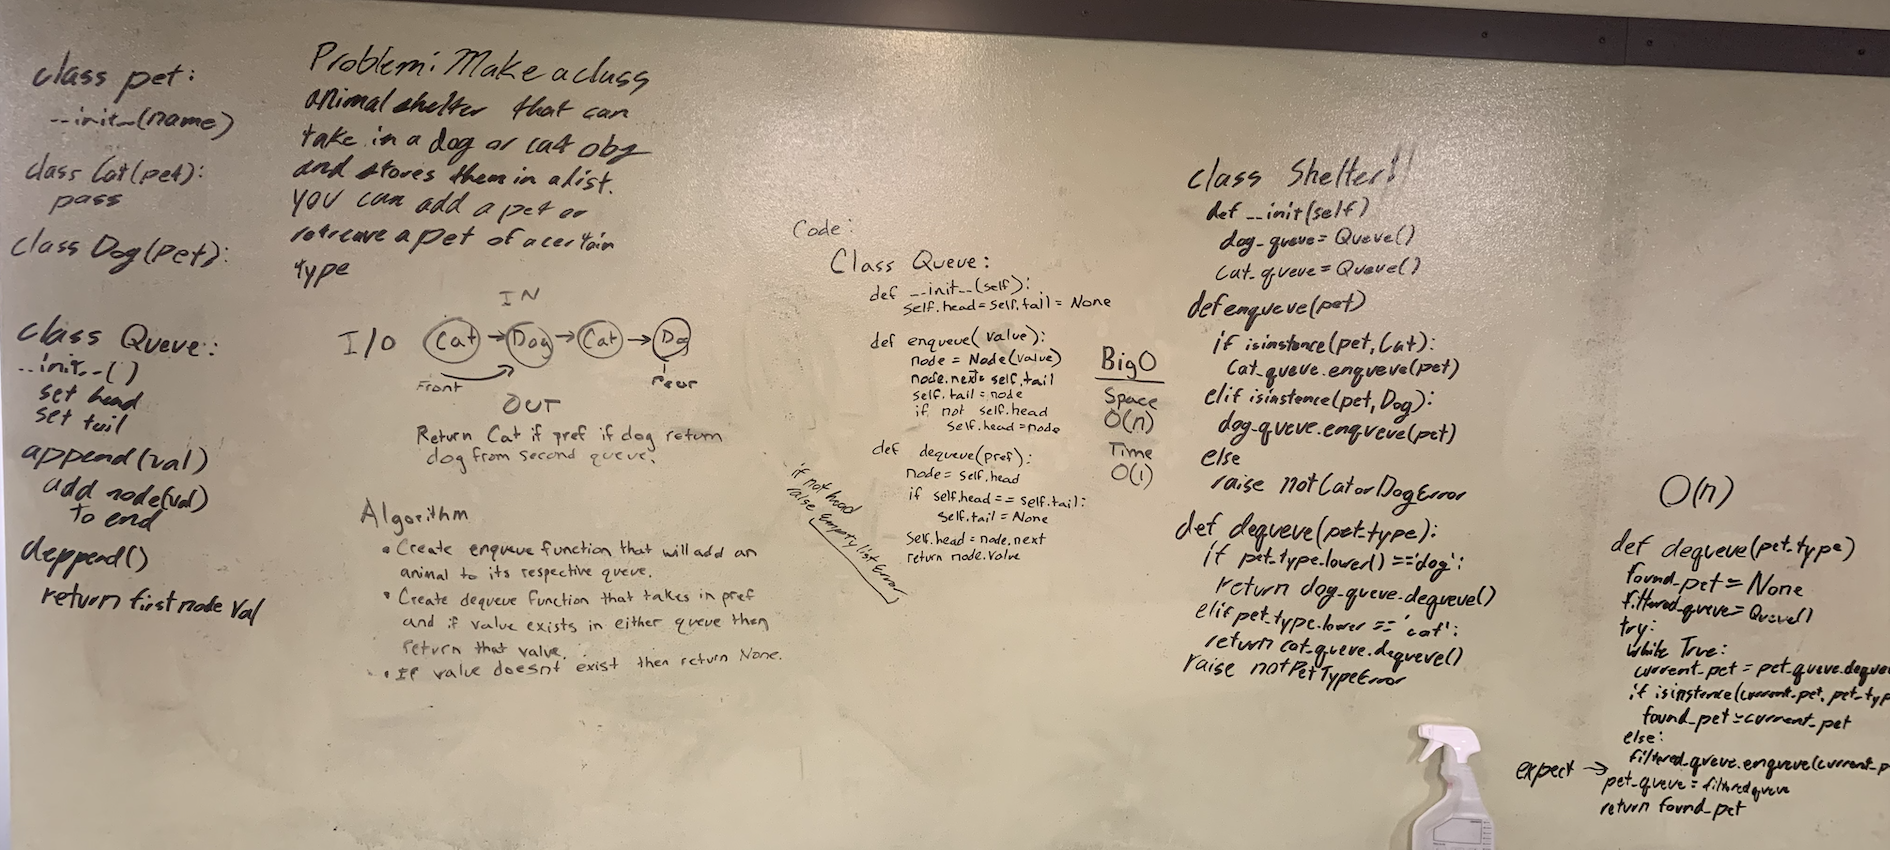 class pet:
--init--(name)
class Cat(pet):
pass
class Dog(pet):
class Queue:
--init--()
set head
set tail
append(val)
add node(val)
to end
deppend()
return first node val
Problem: Make a class
animal shelter that can
take in a dog or cat obj
and stores them in a list.
you can add a pet or
retreave a pet of a certain
type
IN
I/O Cat → Dog → Cat → Dog
Front Rear
OUT
Return Cat if pref if dog return
dog from second queue.
Algorithm
• Create enqueue function that will add an
animal to its respective queue.
• Create dequeue function that takes in pref
and if value exists in either queue then
return that value.
• If value doesnt exist then return None.
Code:
Class Queue:
def --init--(self):
self.head = self.tail = None
def enqueue(value):
node = Node(value)
node.next = self.tail
self.tail = node
if not self.head
self.head = node
def dequeue(pref):
node = self.head
if self.head == self.tail:
self.tail = None
self.head = node.next
return node.value
if not head
raise Empty list Error
Big O
Space
O(n)
Time
O(1)
class Shelter!!
def --init(self)
dog_queue = Queue()
cat_queue = Queue()
def enqueue(pet)
if isinstance(pet, Cat):
Cat_queue.enqueue(pet)
elif isinstance(pet, Dog):
dog_queue.enqueue(pet)
else
raise notCatorDogError
def dequeue(pet_type):
if pet_type.lower() == 'dog':
return dog_queue.dequeue()
elif pet_type.lower == 'cat':
return cat_queue.dequeue()
raise notPetTypeError
O(n)
def dequeue(pet_type)
found_pet = None
filtered_queue = Queue()
try:
while True:
current_pet = pet_queue.deque
if isinstance(current_pet, pet_typ
found_pet = current_pet
else:
filtered_queue.enqueue(current_p
expect →
pet_queue = filteredqueue
return found_pet